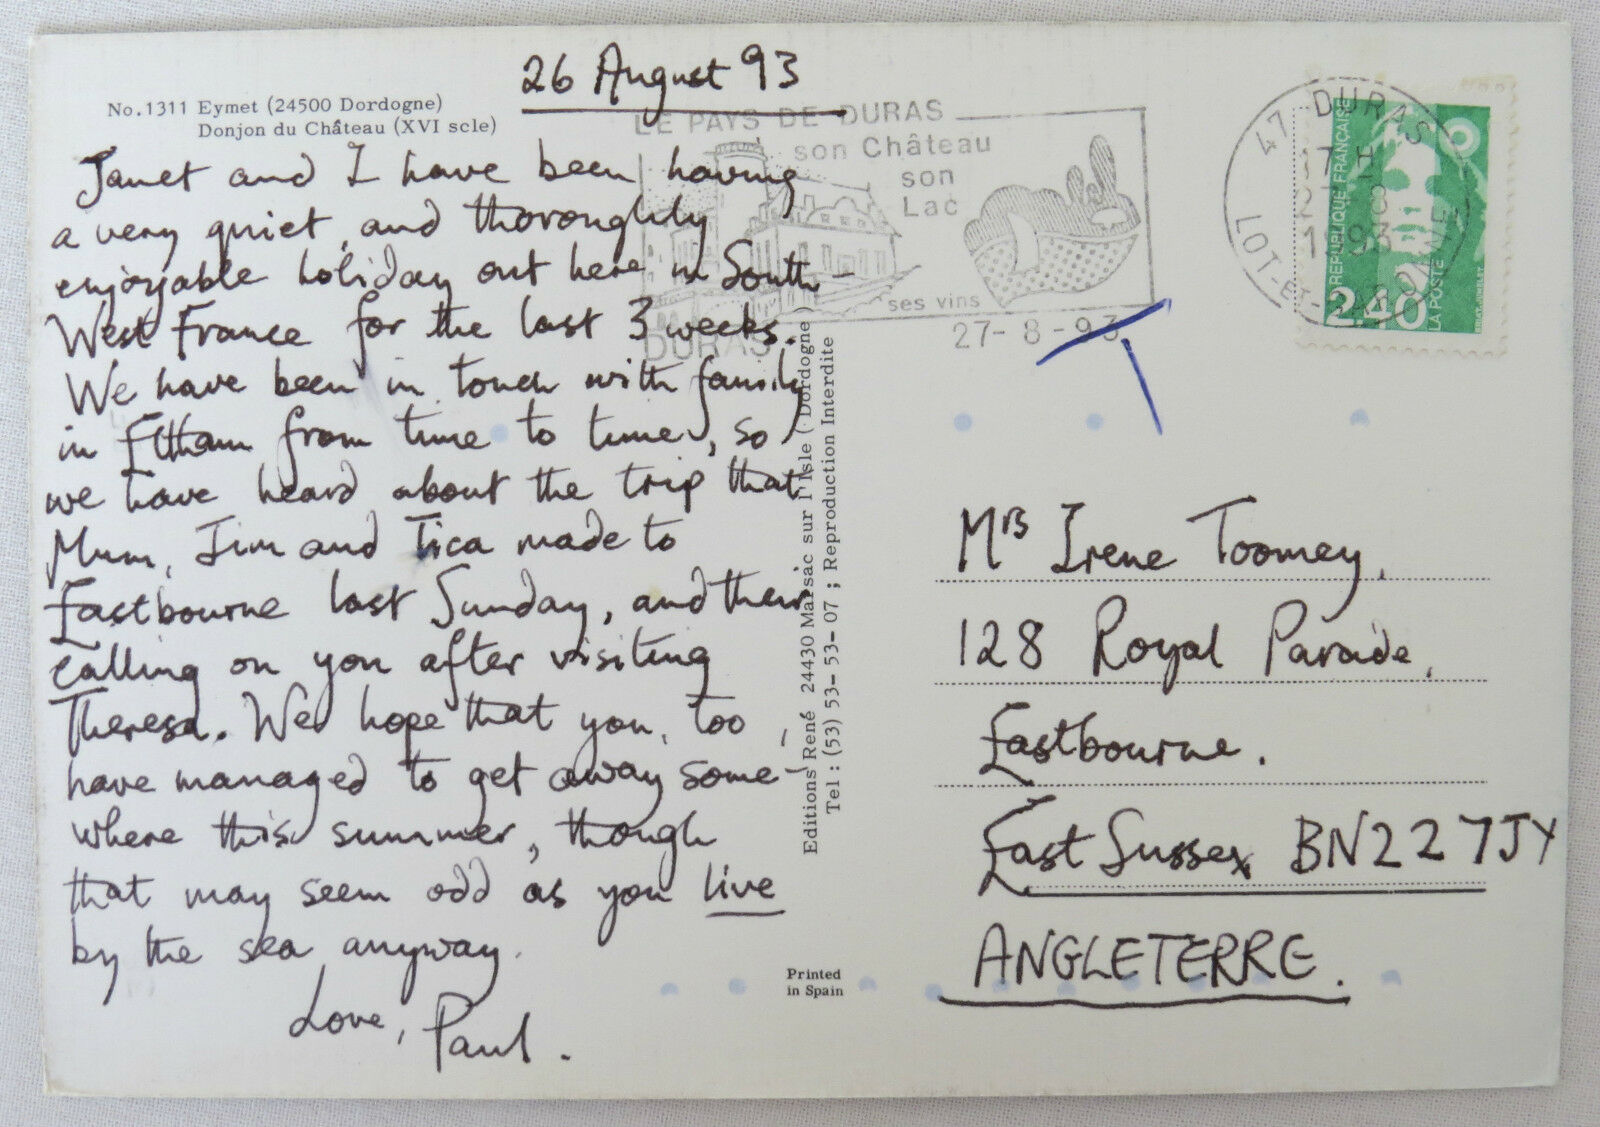 26 August 93
No.1311 Eymet (24500 Dordogne)
Donjon du Château (XVI scle)
Janet and I have been having
a very quiet, and thoroughly
enjoyable holiday out here in South-
West France for the last 3 weeks.
We have been in touch with family
in Eltham from time to time, so
we have heard about the trip that
Mum, Jim and Tica made to
Eastbourne last Sunday, and their
calling on you after visiting
Theresa. We hope that you, too,
have managed to get away some-
where this summer, though
that may seem odd as you live
by the sea anyway.
Love, Paul.
LE PAYS DE DURAS
son Château
son
Lac
ses vins
DURAS
27-8-93
47 DURAS
17 H
27 8
1993
LOT-ET-GARONNE
REPUBLIQUE FRANÇAISE
2,40
LA POSTE
Editions René 24430 Marsac sur l'Isle (Dordogne)
Tel : (53) 53-53-07 ; Reproduction Interdite
Printed
in Spain
Mrs Irene Toomey,
128 Royal Parade,
Eastbourne.
East Sussex BN22 7JY
ANGLETERRE.